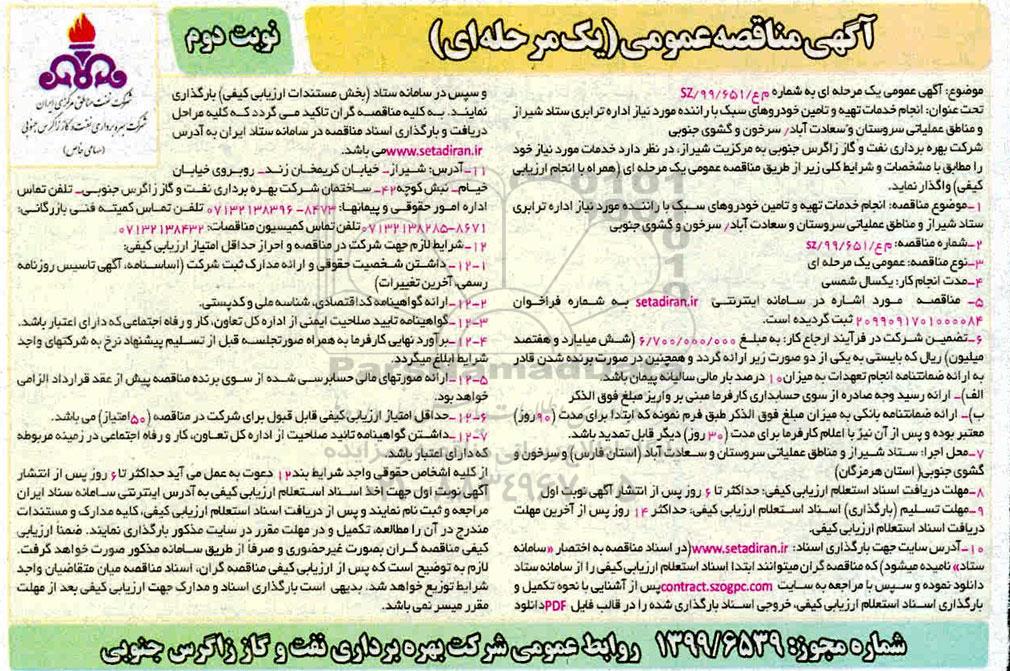 آگهی مناقصه عمومی (یک مرحله‌ای)
نوبت دوم
شرکت نفت مناطق مرکزی ایران
شرکت بهره برداری نفت و گاز زاگرس جنوبی
(سهامی خاص)
موضوع: آگهی عمومی یک مرحله ای به شماره م ع/SZ/۹۹/۶۵۱
تحت عنوان: انجام خدمات تهیه و تامین خودروهای سبک با راننده مورد نیاز اداره ترابری ستاد شیراز
و مناطق عملیاتی سروستان و سعادت آباد، سرخون و گشوی جنوبی
شرکت بهره برداری نفت و گاز زاگرس جنوبی به مرکزیت شیراز، در نظر دارد خدمات مورد نیاز خود
را مطابق با مشخصات و شرایط کلی زیر از طریق مناقصه عمومی یک مرحله ای (همراه با انجام ارزیابی
کیفی) واگذار نماید.
۱-موضوع مناقصه: انجام خدمات تهیه و تامین خودروهای سبک با راننده مورد نیاز اداره ترابری
ستاد شیراز و مناطق عملیاتی سروستان و سعادت آباد، سرخون و گشوی جنوبی
۲-شماره مناقصه: م ع/SZ/۹۹/۶۵۱
۳-نوع مناقصه: عمومی یک مرحله ای
۴-مدت انجام کار: یکسال شمسی
۵- مناقصه مورد اشاره در سامانه اینترنتی setadiran.ir به شماره فراخوان
۲۰۹۹۰۹۱۷۰۱۰۰۰۰۸۴ ثبت گردیده است.
۶-تضمین شرکت در فرآیند ارجاع کار: به مبلغ ۶/۷۰۰/۰۰۰/۰۰۰ (شش میلیارد و هفتصد
میلیون) ریال که بایستی به یکی از دو صورت زیر ارائه گردد و همچنین در صورت برنده شدن قادر
به ارائه ضمانتنامه انجام تعهدات به میزان ۱۰ درصد بار مالی سالیانه پیمان باشد.
الف)- ارائه رسید وجه صادره از سوی حسابداری کارفرما مبنی بر واریز مبلغ فوق الذکر
ب)- ارائه ضمانتنامه بانکی به میزان مبلغ فوق الذکر طبق فرم نمونه که ابتدا برای مدت (۹۰ روز)
معتبر بوده و پس از آن نیز با اعلام کارفرما برای مدت (۳۰ روز) دیگر قابل تمدید باشد.
۷-محل اجرا: ستاد شیراز و مناطق عملیاتی سروستان و سعادت آباد (استان فارس) و سرخون و
گشوی جنوبی( استان هرمزگان)
۸-مهلت دریافت اسناد استعلام ارزیابی کیفی: حداکثر تا ۶ روز پس از انتشار آگهی نوبت اول
۹-مهلت تسلیم (بارگذاری) اسناد استعلام ارزیابی کیفی: حداکثر ۱۴ روز پس از آخرین مهلت
دریافت اسناد استعلام ارزیابی کیفی.
۱۰-آدرس سایت جهت بارگذاری اسناد: www.setadiran.ir (در اسناد مناقصه به اختصار «سامانه
ستاد» نامیده میشود) که مناقصه گران میتوانند ابتدا اسناد استعلام ارزیابی کیفی را از سامانه ستاد
دانلود نموده و سپس با مراجعه به سایت contract.szogpc.com پس از آشنایی با نحوه تکمیل و
بارگذاری اسناد استعلام ارزیابی کیفی، خروجی اسناد بارگذاری شده را در قالب فایل PDF دانلود
و سپس در سامانه ستاد (بخش مستندات ارزیابی کیفی) بارگذاری
نمایند. به کلیه مناقصه گران تاکید می گردد که کلیه مراحل
دریافت و بارگذاری اسناد مناقصه در سامانه ستاد ایران به آدرس
www.setadiran.ir می باشد.
۱۱-آدرس: شیراز- خیابان کریمخان زند- روبروی خیابان
خیام- نبش کوچه ۴۲- ساختمان شرکت بهره برداری نفت و گاز زاگرس جنوبی- تلفن تماس
اداره امور حقوقی و پیمانها: ۸۴۷۳- ۰۷۱۳۲۱۳۸۳۹۶ تلفن تماس کمیته فنی بازرگانی:
۸۶۷۱-۰۷۱۳۲۱۳۸۲۸۵ تلفن تماس کمیسیون مناقصات: ۰۷۱۳۲۱۳۸۴۳۲
۱۲-شرایط لازم جهت شرکت در مناقصه و احراز حداقل امتیاز ارزیابی کیفی:
۱۲-۱- داشتن شخصیت حقوقی و ارائه مدارک ثبت شرکت (اساسنامه، آگهی تاسیس روزنامه
رسمی، آخرین تغییرات)
۱۲-۲-ارائه گواهینامه کد اقتصادی، شناسه ملی و کدپستی.
۱۲-۳-گواهینامه تایید صلاحیت ایمنی از اداره کل تعاون، کار و رفاه اجتماعی که دارای اعتبار باشد.
۱۲-۴-برآورد نهایی کارفرما به همراه صورتجلسه قبل از تسلیم پیشنهاد نرخ به شرکتهای واجد
شرایط ابلاغ میگردد.
۱۲-۵-ارائه صورتهای مالی حسابرسی شده از سوی برنده مناقصه پیش از عقد قرارداد الزامی
خواهد بود.
۱۲-۶-حداقل امتیاز ارزیابی کیفی قابل قبول برای شرکت در مناقصه (۵۰ امتیاز) می باشد.
۱۲-۷-داشتن گواهینامه تائید صلاحیت از اداره کل تعاون، کار و رفاه اجتماعی در زمینه مربوطه
که دارای اعتبار باشد.
از کلیه اشخاص حقوقی واجد شرایط بند ۱۲ دعوت به عمل می آید حداکثر تا ۶ روز پس از انتشار
آگهی نوبت اول جهت اخذ اسناد استعلام ارزیابی کیفی به آدرس اینترنتی سامانه ستاد ایران
مراجعه و ثبت نام نمایند و پس از دریافت اسناد استعلام ارزیابی کیفی، کلیه مدارک و مستندات
مندرج در آن را مطالعه، تکمیل و در مهلت مقرر در سایت مذکور بارگذاری نمایند. ضمناً ارزیابی
کیفی مناقصه گران بصورت غیرحضوری و صرفاً از طریق سامانه مذکور صورت خواهد گرفت.
لازم به توضیح است که پس از ارزیابی کیفی مناقصه گران، اسناد مناقصه میان متقاضیان واجد
شرایط توزیع خواهد شد. بدیهی است بارگذاری اسناد و مدارک جهت ارزیابی کیفی بعد از مهلت
مقرر میسر نمی باشد.
شماره مجوز: ۱۳۹۹/۶۵۳۹ روابط عمومی شرکت بهره برداری نفت و گاز زاگرس جنوبی